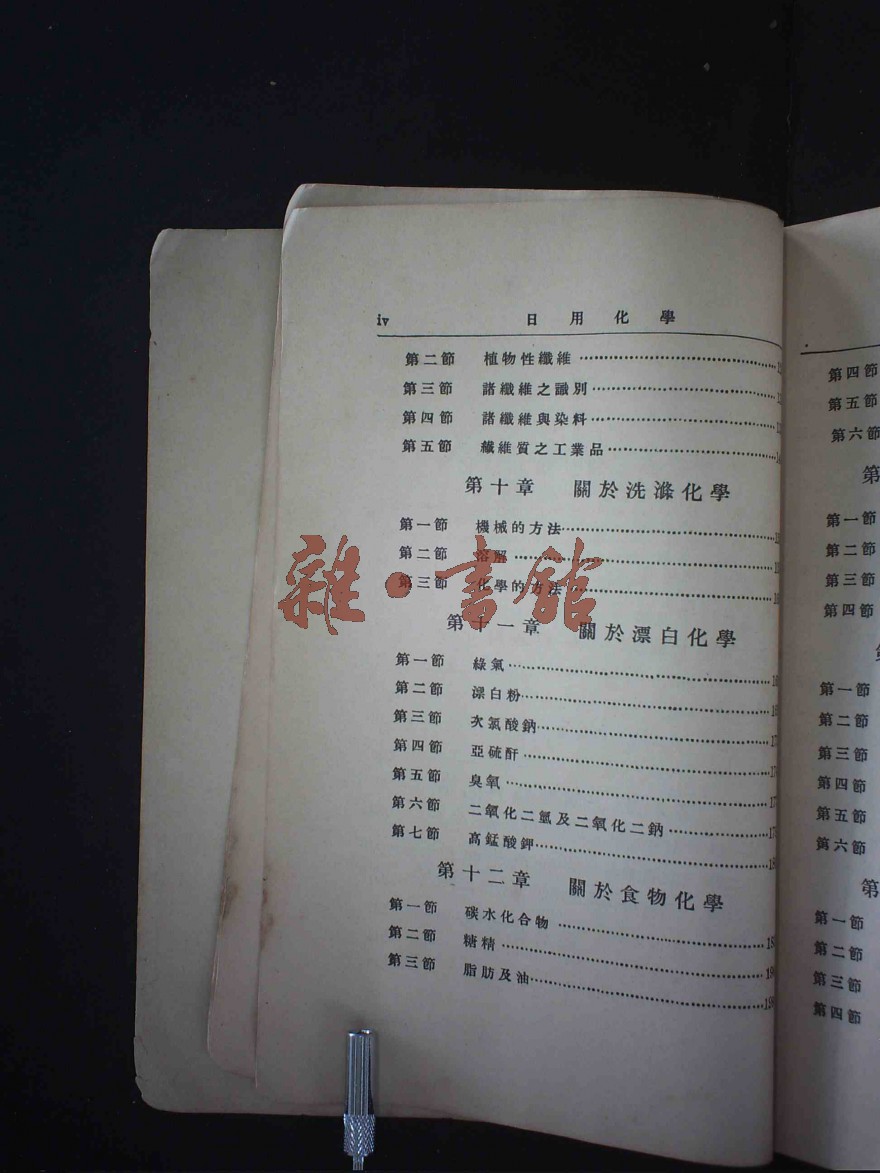 iv 日用化學
第二節 植物性纖維
第三節 諸纖維之識別
第四節 諸纖維與染料
第五節 纖維質之工業品
第十章 關於洗滌化學
第一節 機械的方法
第二節 溶解
第三節 化學的方法
第十一章 關於漂白化學
第一節 綠氣
第二節 漂白粉
第三節 次氯酸鈉
第四節 亞硫酐
第五節 臭氧
第六節 二氧化二氫及二氧化二鈉
第七節 高錳酸鉀
第十二章 關於食物化學
第一節 碳水化合物
第二節 糖精
第三節 脂肪及油
雜·書館
第四節
第五節
第六節
第
第一節
第二節
第三節
第四節
第一節
第二節
第三節
第四節
第五節
第六節
第
第一節
第二節
第三節
第四節